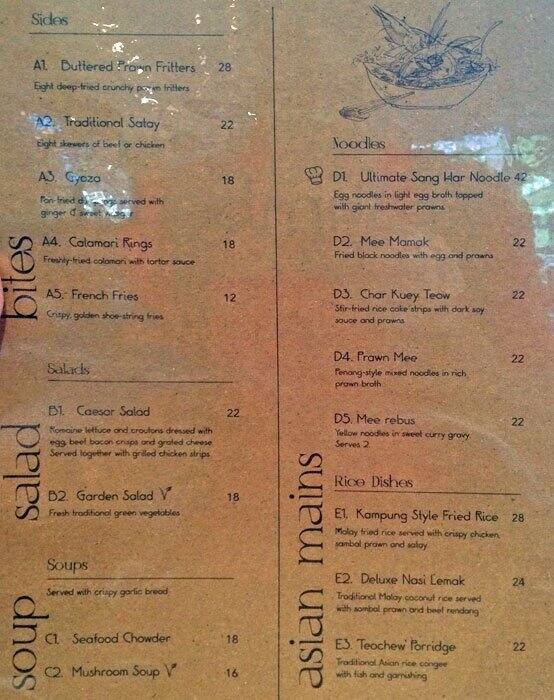 Sides
A1. Buttered Prawn Fritters 28
Eight deep-fried crunchy prawn fritters
A2. Traditional Satay 22
Eight skewers of beef or chicken
A3. Gyoza 18
Pan-fried served with
ginger & sweet
A4. Calamari Rings 18
Freshly-fried calamari with tartar sauce
A5. French Fries 12
Crispy, golden shoe-string fries
bites
Salads
B1. Caesar Salad 22
Romaine lettuce and croutons dressed with
egg, beef bacon crisps and grated cheese
Served together with grilled chicken strips
B2. Garden Salad V 18
Fresh traditional green vegetables
salad
Soups
Served with crispy garlic bread
C1. Seafood Chowder 18
C2. Mushroom Soup V 16
soup
Noodles
D1. Ultimate Sang Har Noodle 42
Egg noodles in light egg broth topped
with giant freshwater prawns
D2. Mee Mamak 22
Fried black noodles with egg and prawns
D3. Char Kuey Teow 22
Stir-fried rice cake strips with dark soy
sauce and prawns
D4. Prawn Mee 22
Penang-style mixed noodles in rich
prawn broth
D5. Mee rebus 22
Yellow noodles in sweet curry gravy
Serves 2
Rice Dishes
E1. Kampung Style Fried Rice 28
Malay fried rice served with crispy chicken,
sambal prawn and satay
E2. Deluxe Nasi Lemak 24
Traditional Malay coconut rice served
with sambal prawn and beef rendang
E3. Teochew Porridge 22
Traditional Asian rice congee
with fish and garnishing
asian mains